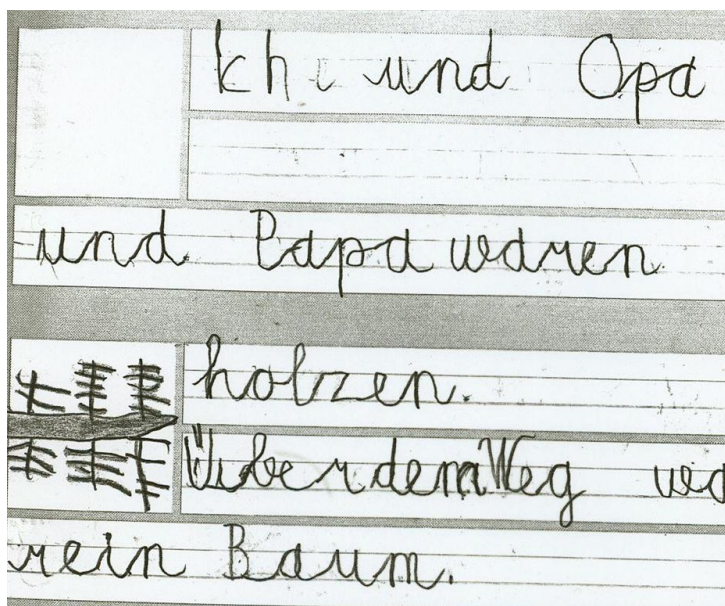 Ich und Opa
und Papa waren
holzen.
Über dem Weg wa
rein Baum.